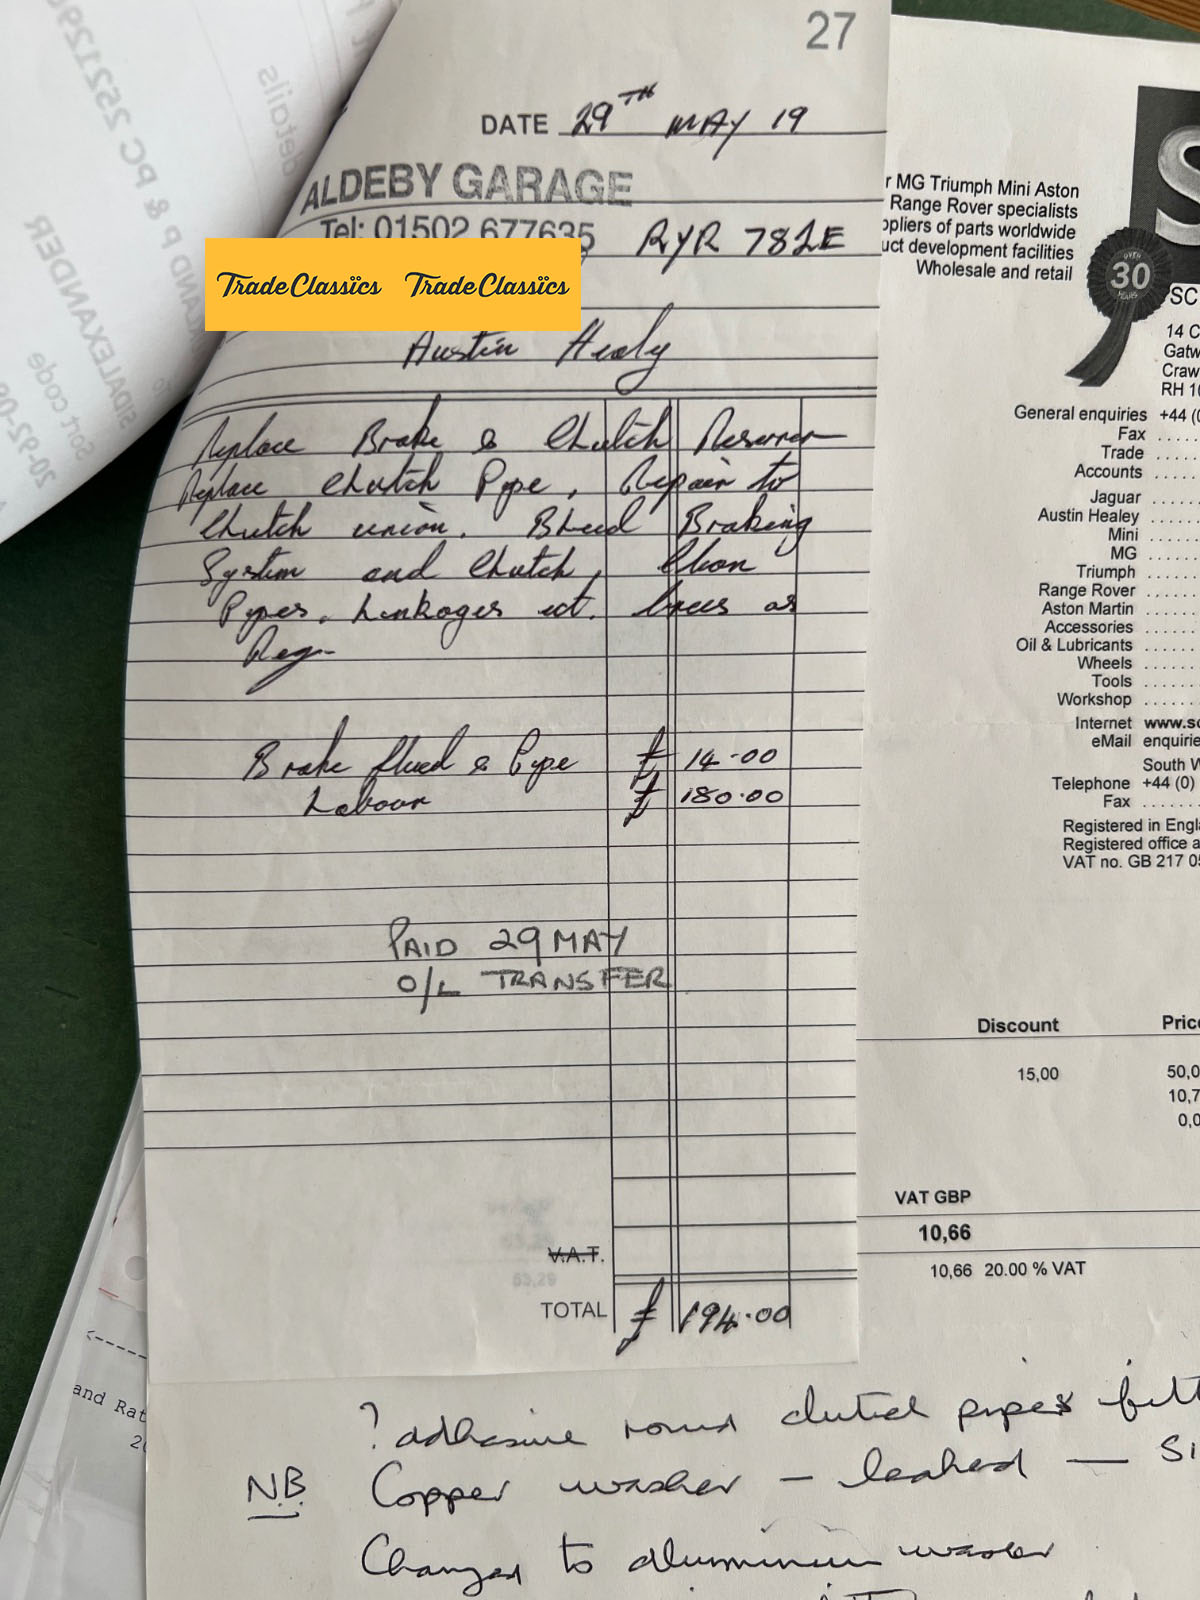 27
DATE 29TH MAY 19
ALDEBY GARAGE
Tel: 01502 677635 RYR 782E
TradeClassics TradeClassics
Austin Healy
Replace Brake & Clutch
Replace Clutch Pype, Repair to
Clutch union. Bleed Braking
System and Clutch, Clean
Pypes, Linkages ect. as
Req-
Brake fluid & Pype £ 14.00
Labour £ 180.00
PAID 29 MAY
O/L TRANSFER
V.A.T.
TOTAL £ 194.00
r MG Triumph Mini Aston
Range Rover specialists
ppliers of parts worldwide
uct development facilities
Wholesale and retail
OVER
30
YEARS
SC
14 C
Gatw
Craw
RH 10
General enquiries +44 (0
Fax .....
Trade .....
Accounts .....
Jaguar .....
Austin Healey .....
Mini .....
MG .....
Triumph .....
Range Rover .....
Aston Martin .....
Accessories .....
Oil & Lubricants .....
Wheels .....
Tools .....
Workshop .....
Internet www.sc
eMail enquirie
South W
Telephone +44 (0)
Fax .....
Registered in Engla
Registered office a
VAT no. GB 217 05
Discount Price
15,00 50,0
10,7
0,0
VAT GBP
10,66
10,66 20.00 % VAT
53,29
? adhesive round clutch pipes fitt
NB Copper washer - leaked - Si
Changed to aluminium washer
<----------
and Rat
20
details
& PC 2521296
SIDALEXANDER
Sort code
20-92-09